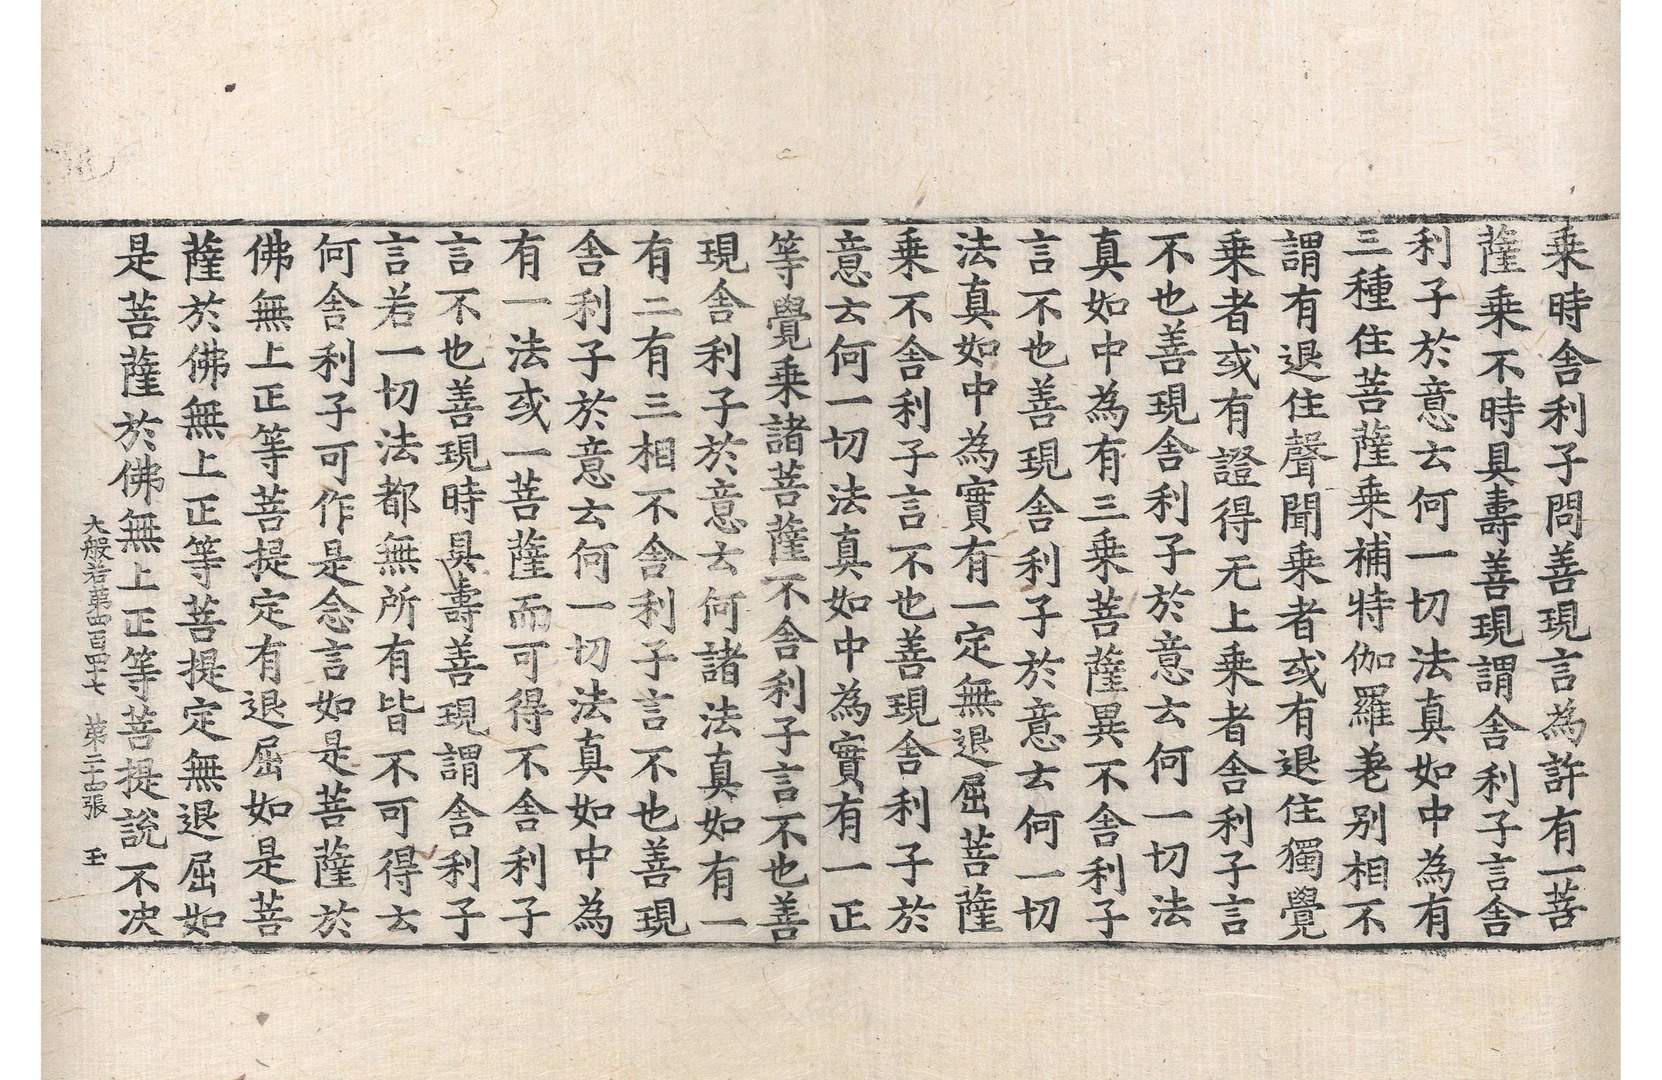 乗時舍利子問善現言為許有一菩
薩乗不時具壽善現謂舍利子言舍
利子於意云何一切法真如中為有
三種住菩薩乗補特伽羅差別相不
謂有退住聲聞乗者或有退住獨覺
乗者或有證得无上乗者舍利子言
不也善現舍利子於意云何一切法
真如中為有三乗菩薩異不舍利子
言不也善現舍利子於意云何一切
法真如中為實有一定無退屈菩薩
乗不舍利子言不也善現舍利子於
意云何一切法真如中為實有一正
等覺乗諸菩薩不舍利子言不也善
現舍利子於意云何諸法真如有一
有二有三相不舍利子言不也善現
舍利子於意云何一切法真如中為
有一法或一菩薩而可得不舍利子
言不也善現時具壽善現謂舍利子
言若一切法都無所有皆不可得云
何舍利子可作是念言如是菩薩於
佛無上正等菩提定有退屈如是菩
薩於佛無上正等菩提定無退屈如
是菩薩於佛無上正等菩提說不决
大般若第四百四十七 第二十四張 玉